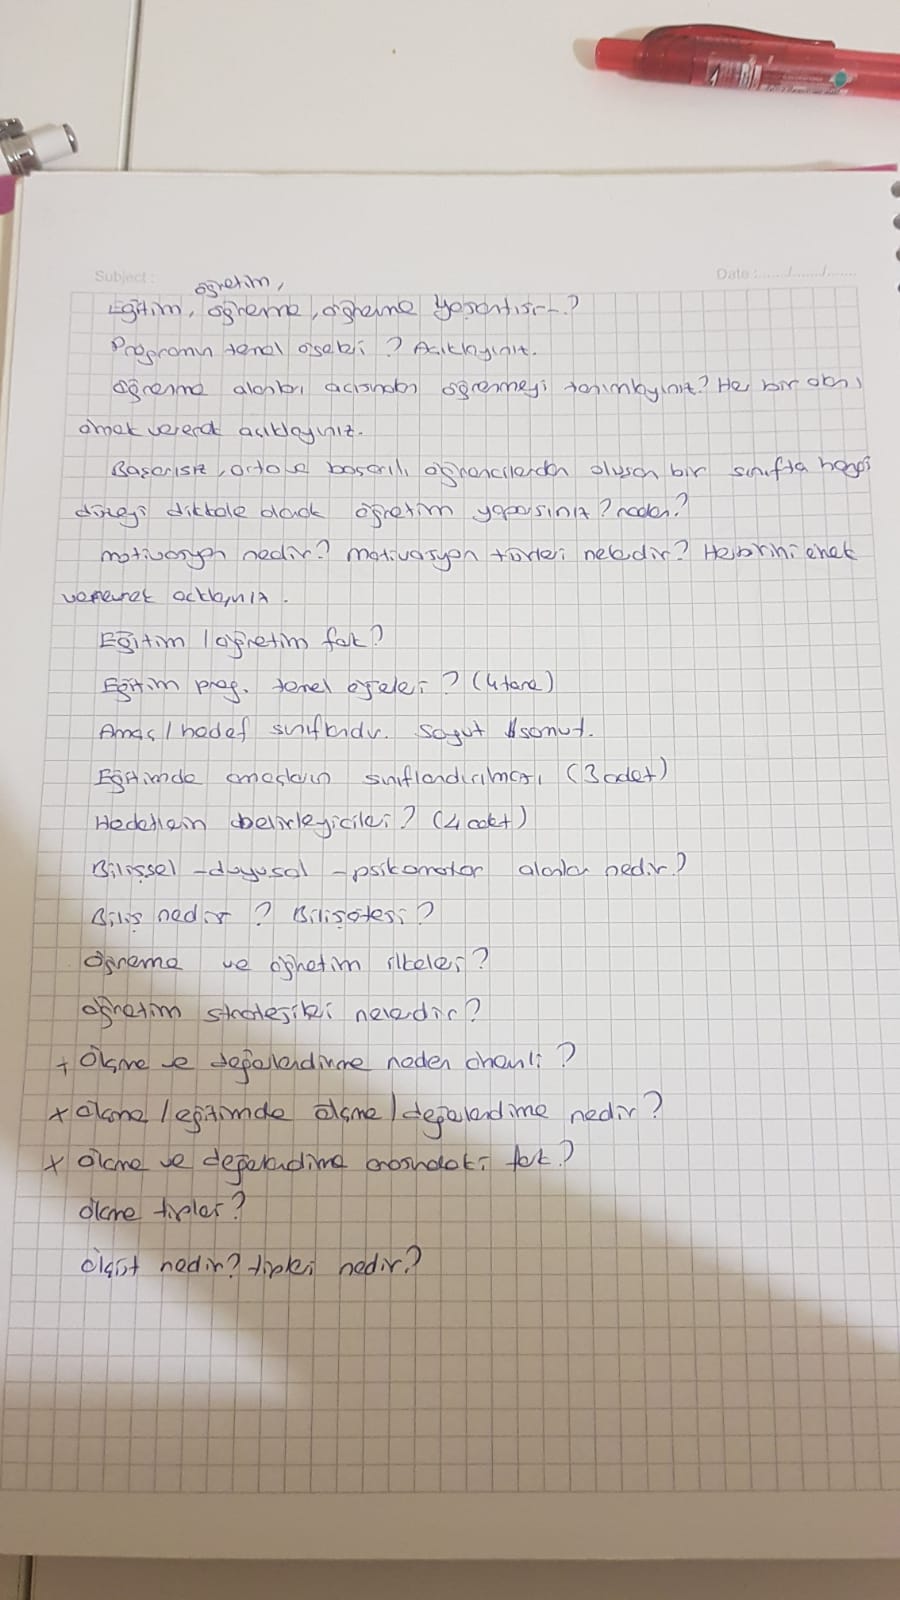 Subject :
Date :....../....../......
öğretim,
Eğitim, öğrenme, öğrenme yaşantısı - ?
Programın temel öğeleri ? Açıklayınız.
Öğrenme alanları açısından öğrenmeyi tanımlayınız? Her bir alanı
örnek vererek açıklayınız.
Başarısız, orta ve başarılı öğrencilerden oluşan bir sınıfta hangi
düzeyi dikkate alarak öğretim yaparsınız? neden?
motivasyon nedir? motivasyon türleri nelerdir? Herbirini örnek
vererek açıklayınız.
Eğitim / öğretim fark?
Eğitim prog. temel öğeleri ? (4 tane)
Amaç / hedef sınıflandır. Soyut somut.
Eğitimde amaçların sınıflandırılması (3 adet)
Hedeflerin belirleyicileri? (4 adet)
Bilişsel - duyuşsal - psikomotor alanlar nedir?
Biliş nedir ? Bilişötesi ?
Öğrenme ve öğretim ilkeleri ?
Öğretim stratejileri nelerdir?
+ Ölçme ve değerlendirme neden önemli ?
x Ölçme / eğitimde ölçme / değerlendirme nedir ?
x Ölçme ve değerlendirme arasındaki fark ?
Ölçme tipleri ?
Ölçüt nedir? tipleri nedir?